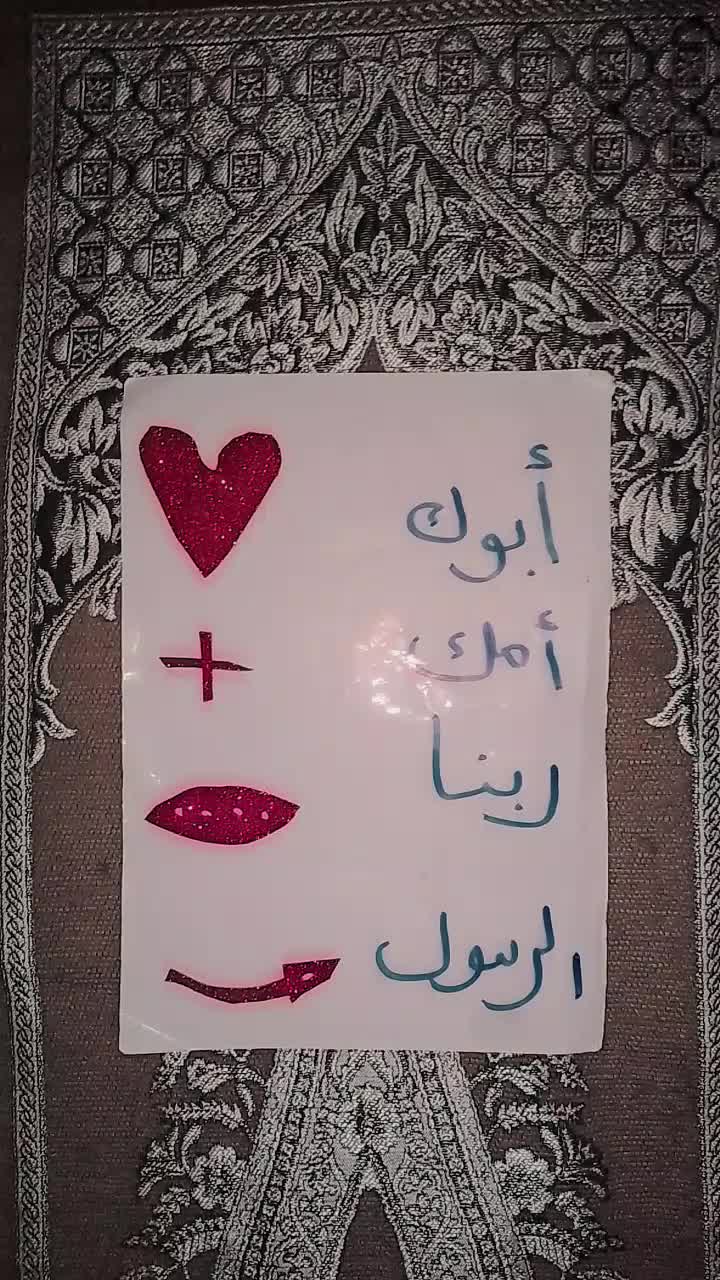 أبوك
أمك
ربنا
الرسول